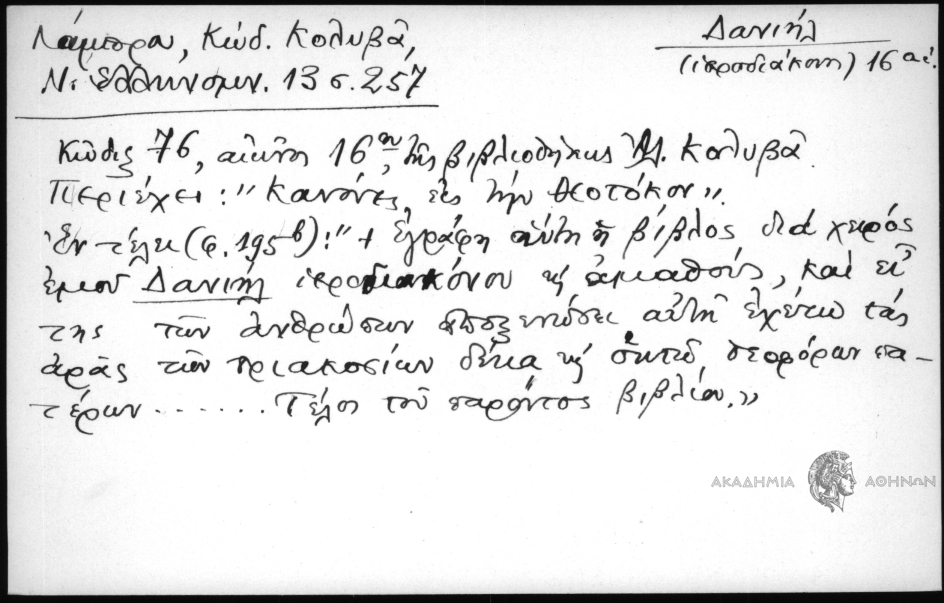 Λάμπρου, Κώδ. Κολυβᾶ,
Ν. Ἑλληνομν. 13 σ. 257
Δανιήλ
(ἱεροδιάκονος) 16 αἰ.
Κῶδιξ 76, αἰῶνος 16ου, τῆς βιβλιοθήκης Ἀλ. Κολυβᾶ.
Περιέχει: "Κανόνες εἰς τὴν Θεοτόκον".
Ἐν τέλει (φ. 195β): "+ Ἐγράφη αὕτη ἡ βίβλος διὰ χειρός
ἐμοῦ Δανιήλ ἱεροδιακόνου κ) ἀμαθοῦς, καὶ εἴ
της τῶν ἀνθρώπων ἀποξενώσει αὐτὴ ἐχέτω τὰς
ἀρὰς τῶν τριακοσίων δέκα κ) ὀκτὼ θεοφόρων πα-
τέρων ....... Τέλος τοῦ παρόντος βιβλίου."
ΑΚΑΔΗΜΙΑ ΑΘΗΝΩΝ